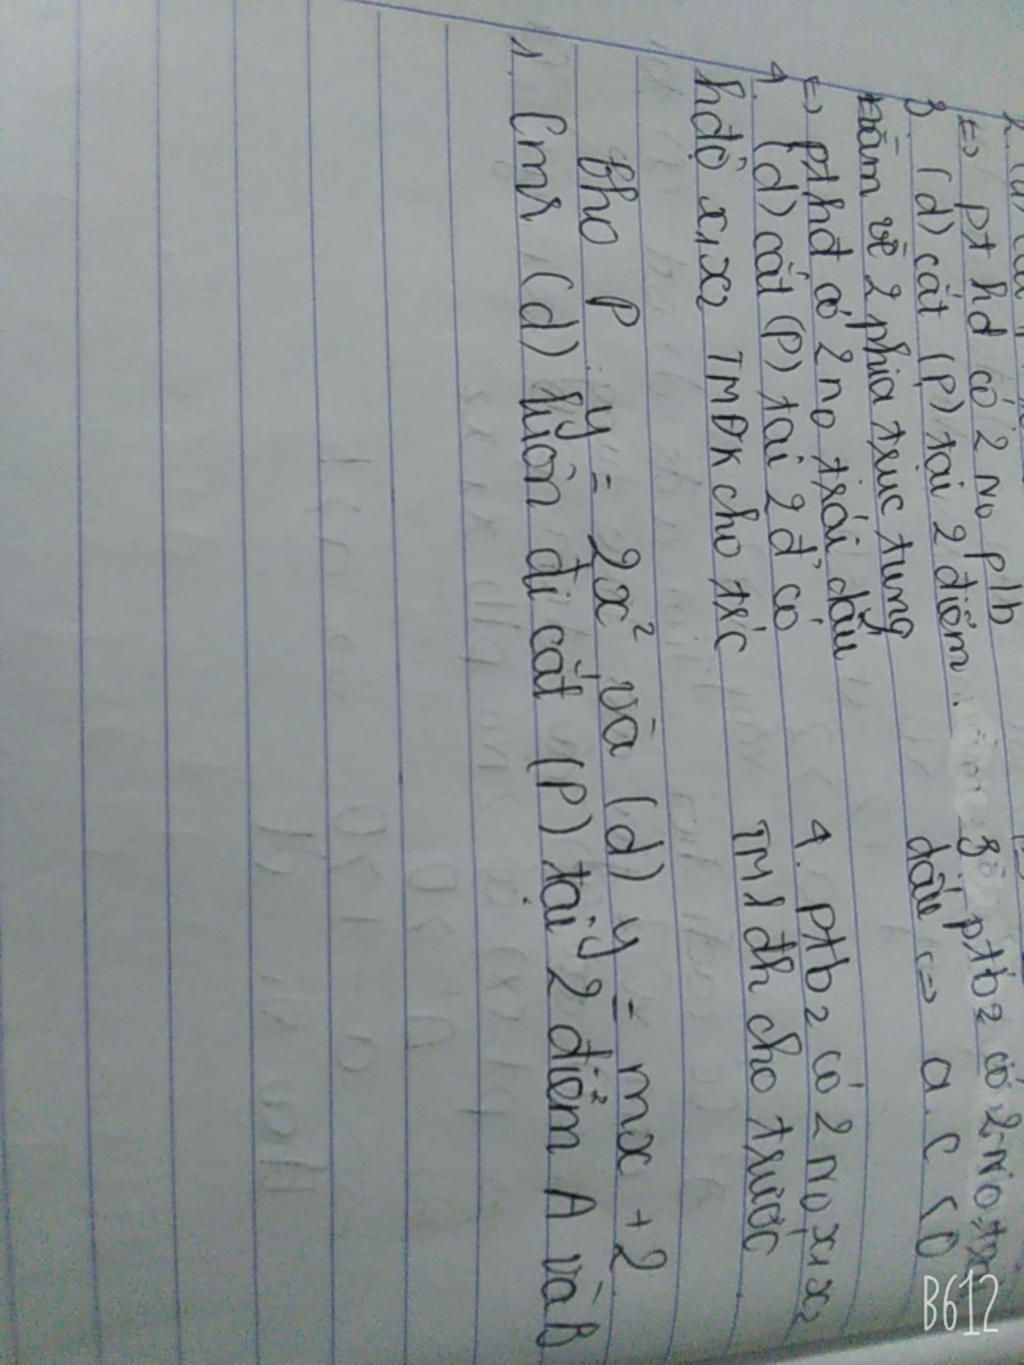 ⇔ pt hđ có 2 no plb
3. (d) cắt (P) tại 2 điểm
nằm về 2 phía trục tung
⇔ pthđ có 2 no trái dấu
4. (d) cắt (P) tại 2đ' có
hđộ x1x2 TMĐK cho trc
3 ptb2 có 2 no
dấu ⇔ a.c <0
4. Ptb2 có 2 no x1x2
TM 1 đk cho trước
Cho P y = 2x² và (d) y = mx + 2
1. Cmr (d) luôn đi cắt (P) tại 2 điểm A và B
B612